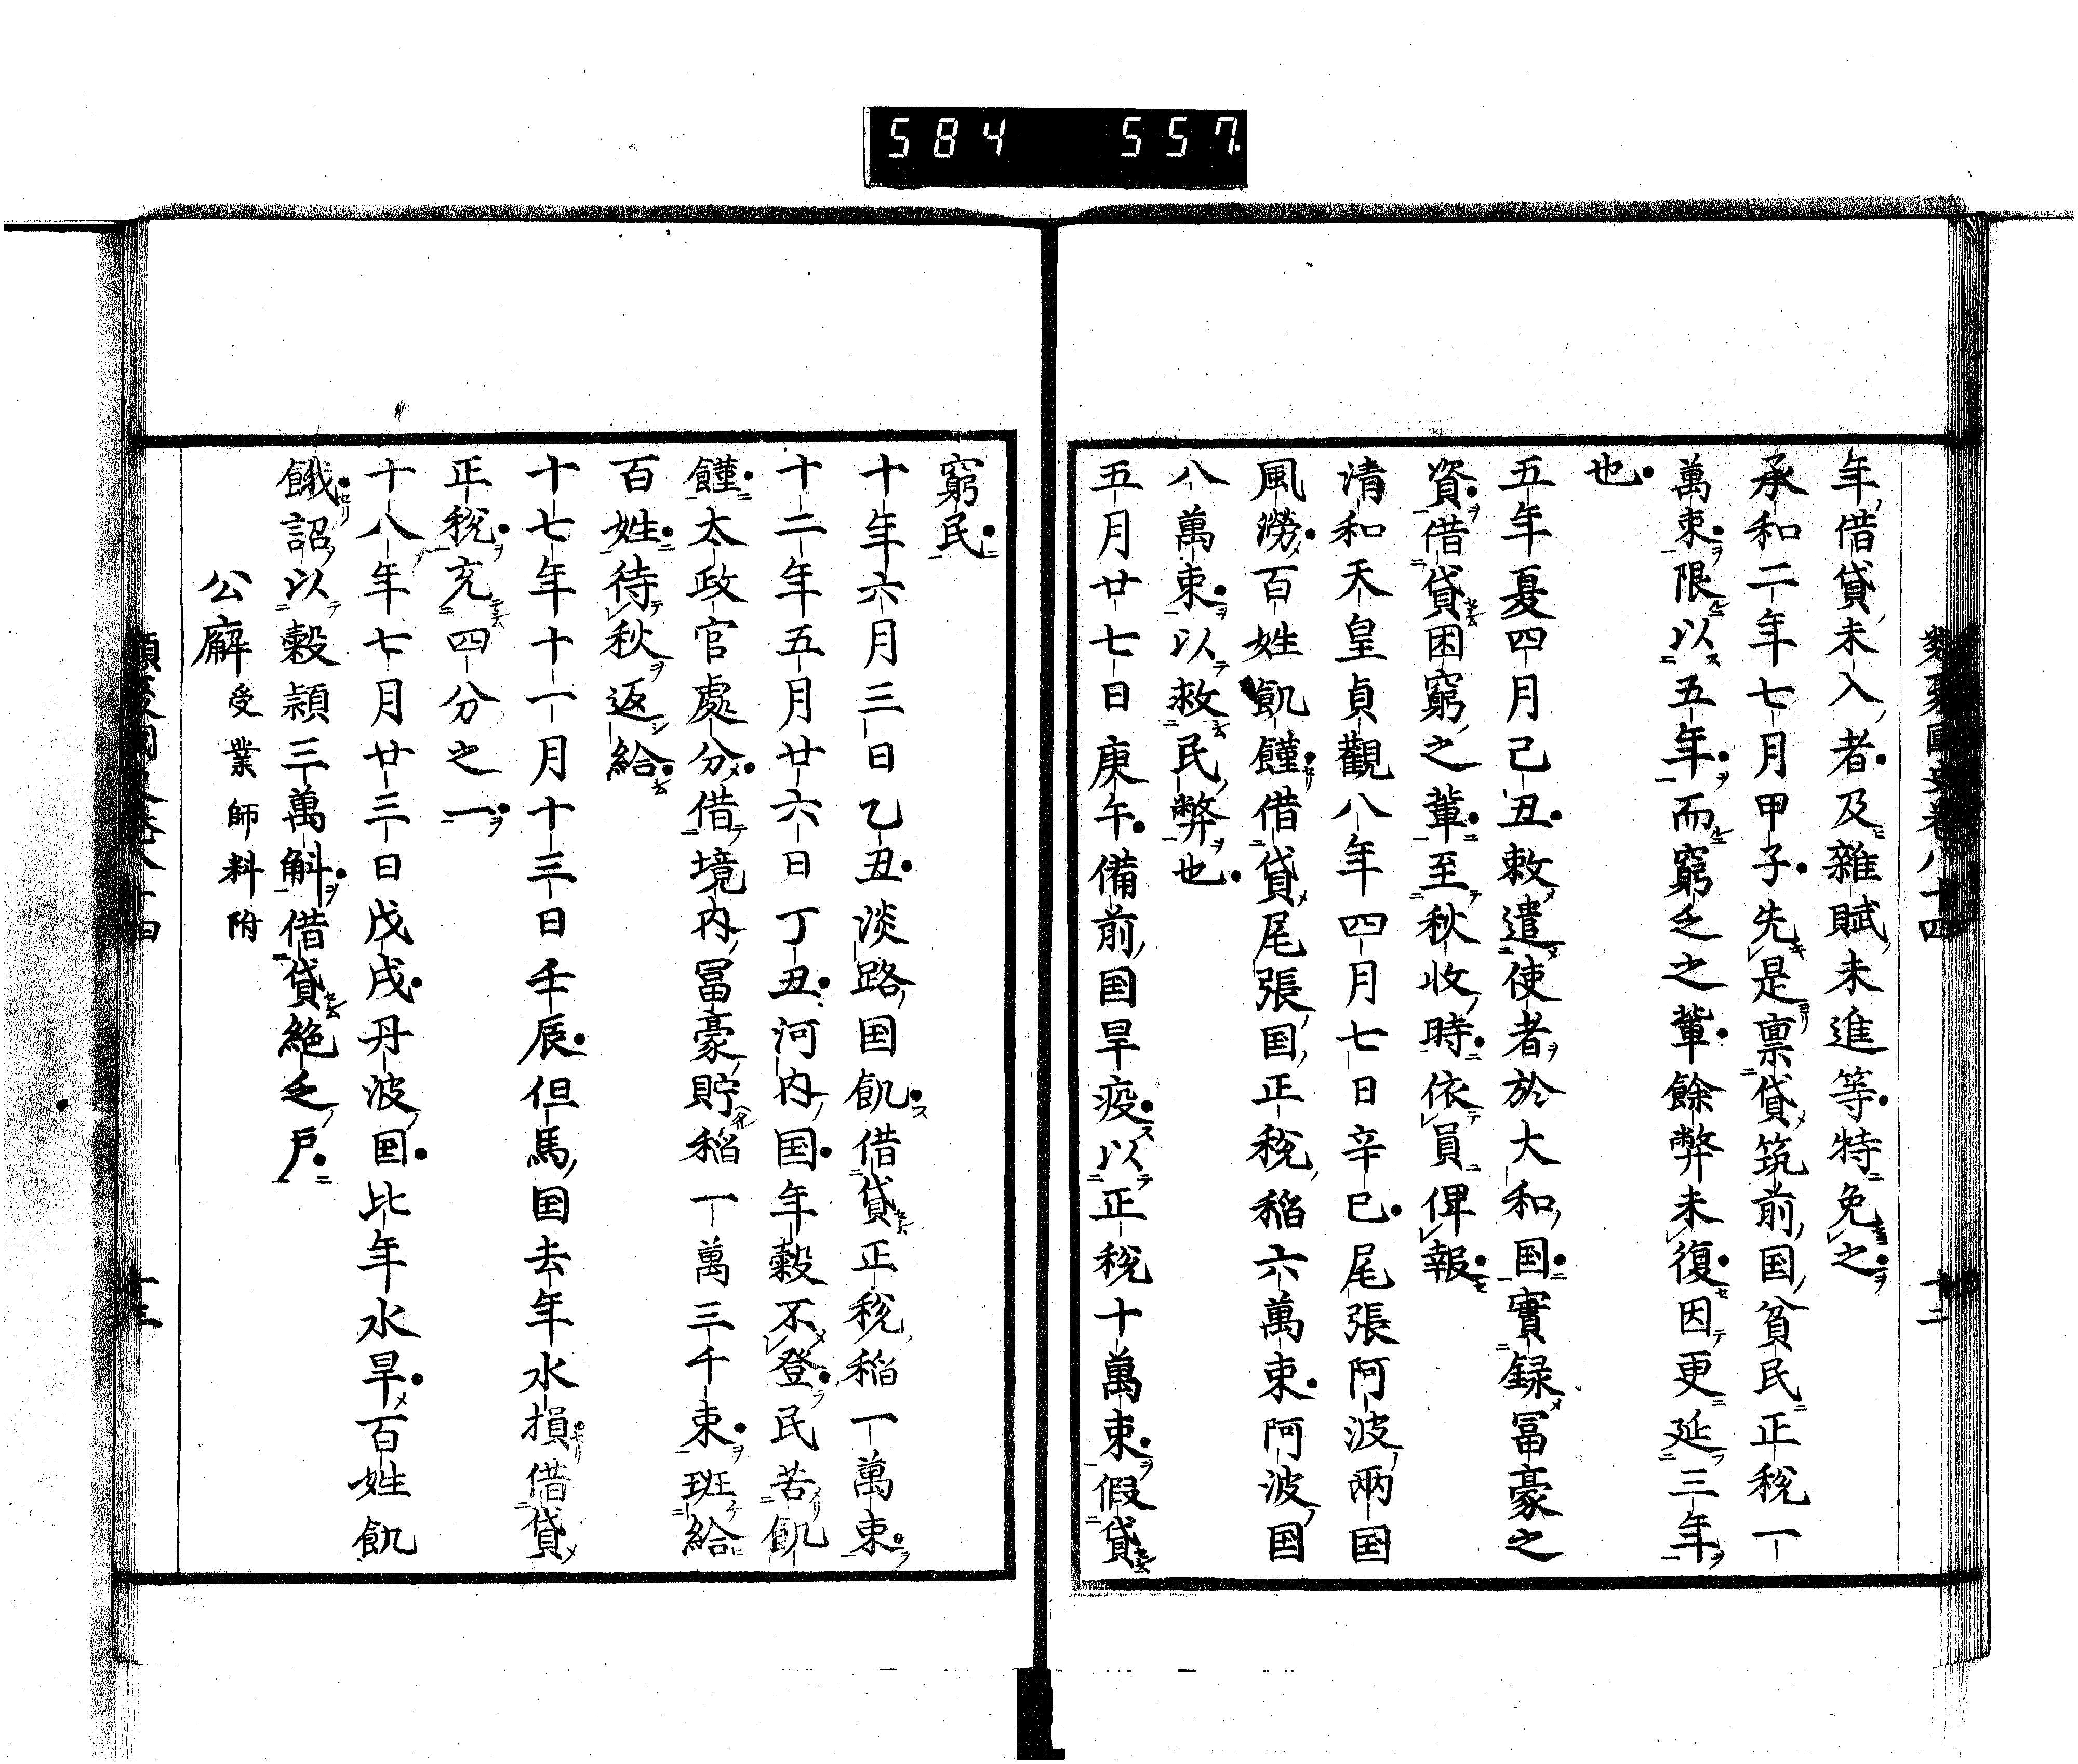 584 557
類聚国史巻八十四 十二
年借貸未入者及雜賦未進等特免之
承和二年七月甲子先是禀貸筑前国貧民正税一
萬束限以五年而窮乏之輩餘弊未復因更延三年
也
五年夏四月己丑敕遣使者於大和国實録冨豪之
資借貸困窮之輩至秋收時依員俾報
清和天皇貞觀八年四月七日辛巳尾張阿波兩国
風澇百姓飢饉借貸尾張国正税稲六萬束阿波国
八萬束以救民弊也
五月廿七日庚午備前国旱疫以正税十萬束假貸
窮民
十年六月三日乙丑淡路国飢借貸正税稲一萬束
十二年五月廿六日丁丑河内国年穀不登民苦飢
饉太政官處分借境内冨豪貯稲一萬三千束班給
百姓待秋返給
十七年十一月十三日壬辰但馬国去年水損借貸
正税充四分之一
十八年七月廿三日戊戌丹波国比年水旱百姓飢
餓詔以穀穎三萬斛借貸絶乏戸
公廨 受業師料附
類聚国史巻八十四 十三